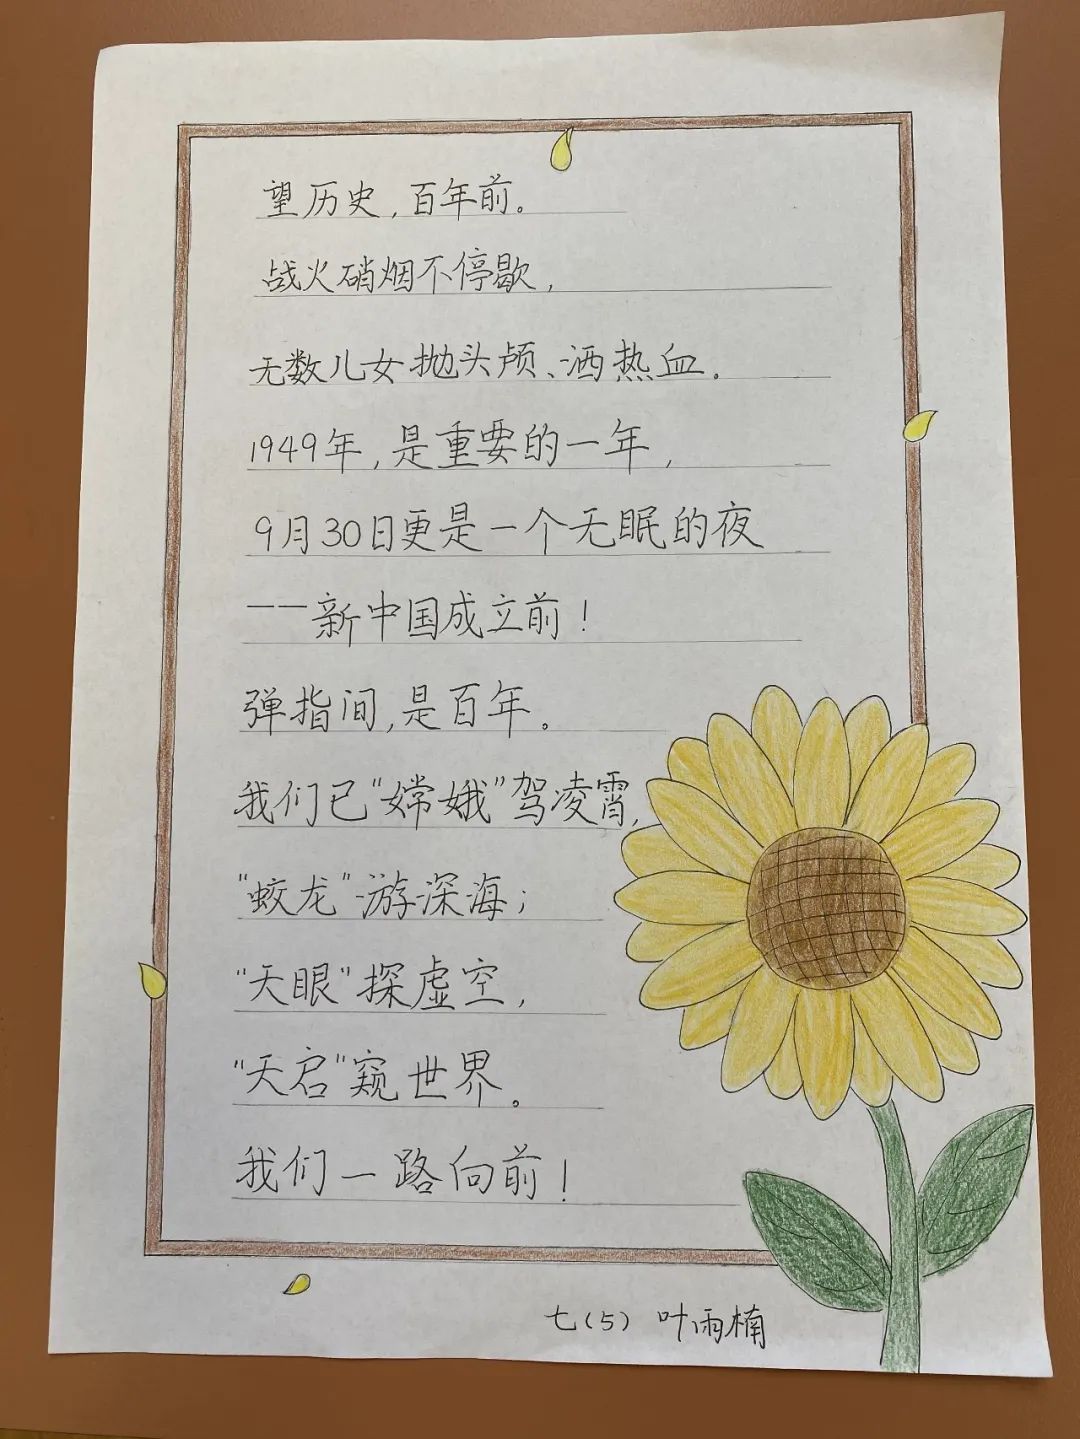 望历史,百年前。
战火硝烟不停歇,
无数儿女抛头颅、洒热血。
1949年,是重要的一年,
9月30日更是一个无眠的夜
——新中国成立前!
弹指间,是百年。
我们已“嫦娥”驾凌霄,
“蛟龙”游深海;
“天眼”探虚空,
“天启”窥世界。
我们一路向前!
七(5) 叶雨楠